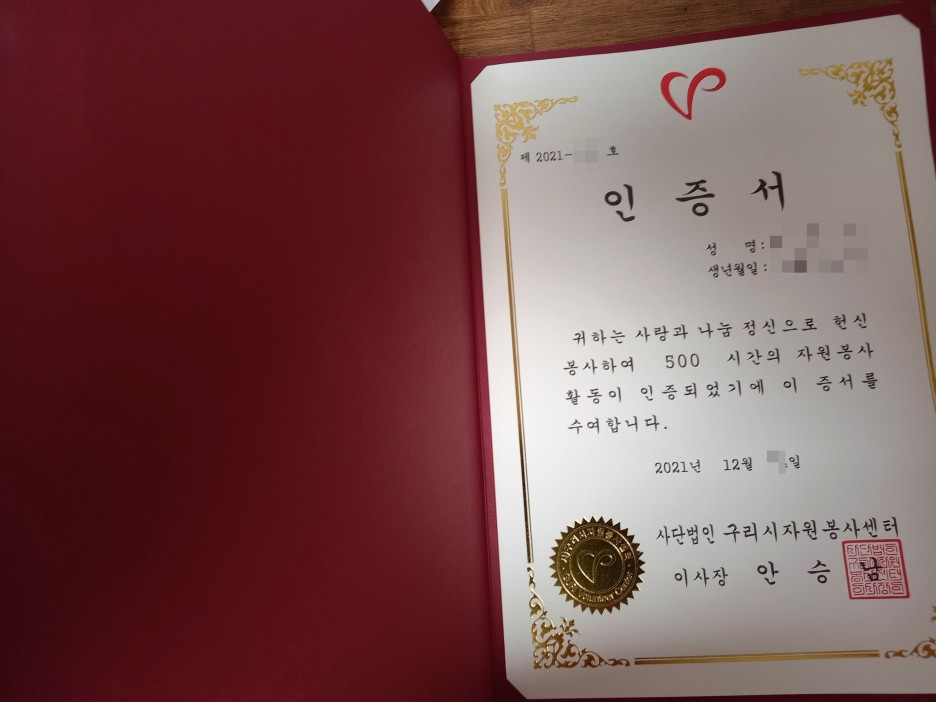 제 2021- 호
인 증 서
성 명 :
생년월일 :
귀하는 사랑과 나눔 정신으로 헌신
봉사하여 500 시간의 자원봉사
활동이 인증되었기에 이 증서를
수여합니다.
2021년 12월 일
사단법인 구리시자원봉사센터
이사장 안 승 남
Volunteer